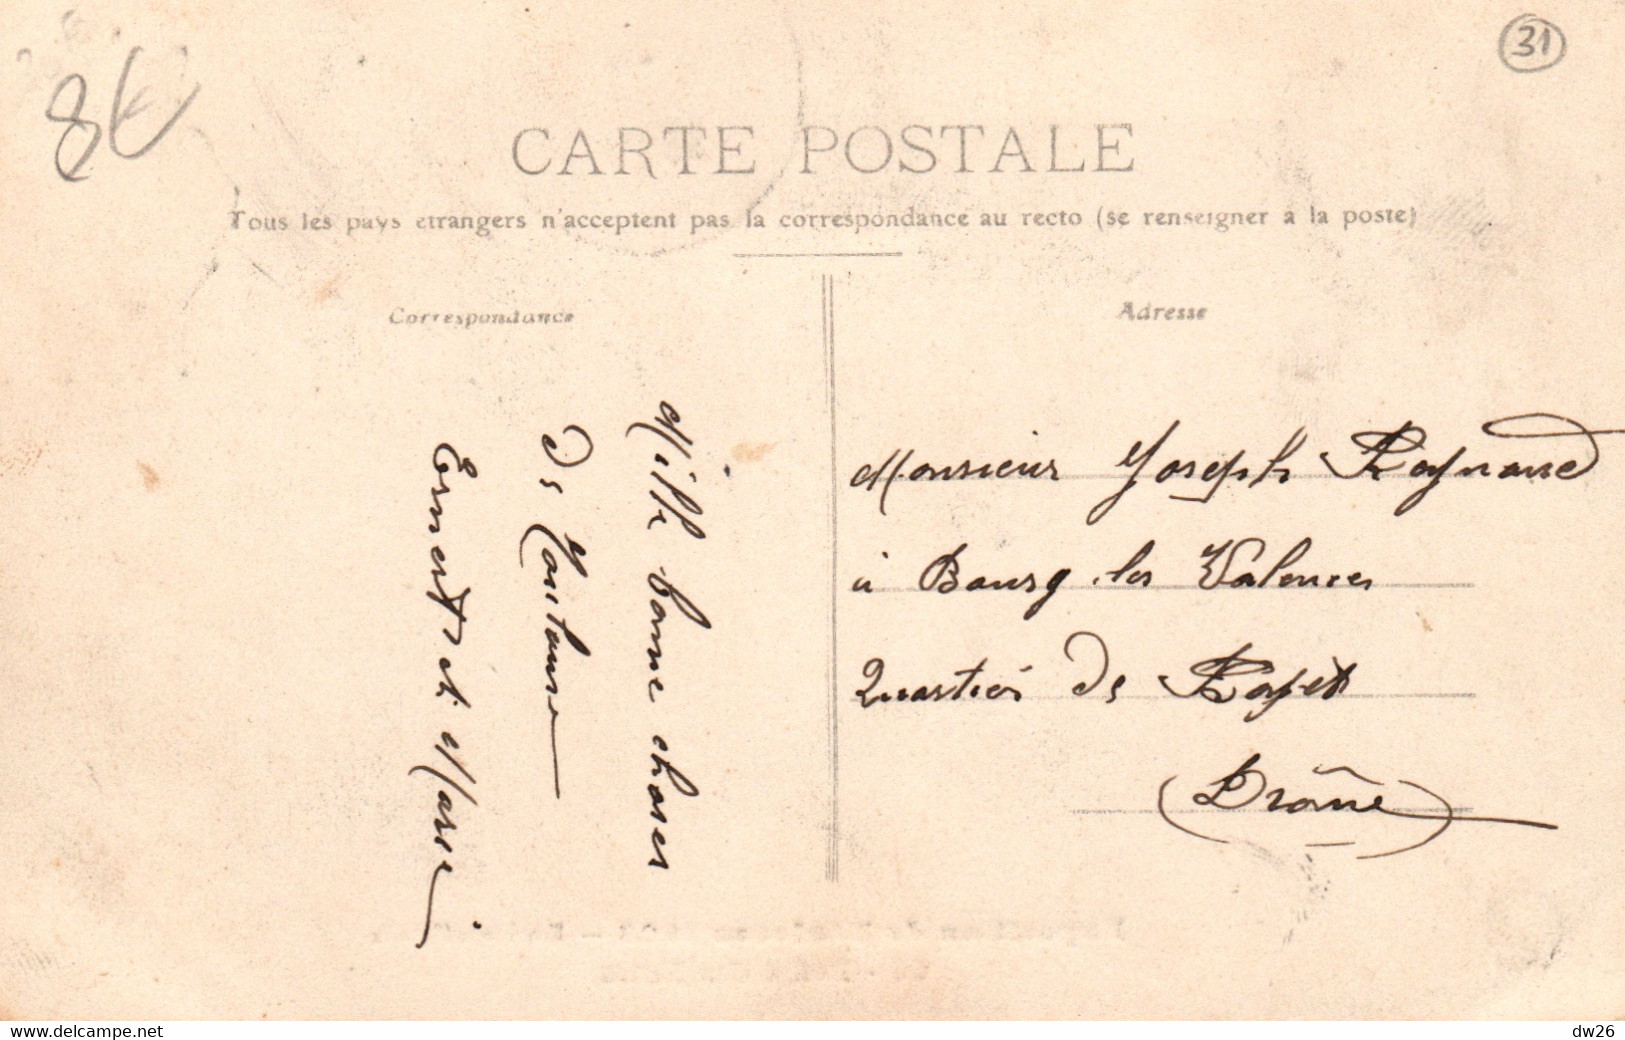 8€
31
CARTE POSTALE
Tous les pays etrangers n'acceptent pas la correspondance au recto (se renseigner a la poste)
Correspondance
Adresse
Mille bonne choses
de Toulouse
Ernest et Marie
Monsieur Joseph Raynaud
à Bourg les Valences
Quartier de Rayet
(Drôme)
www.delcampe.net
dw26